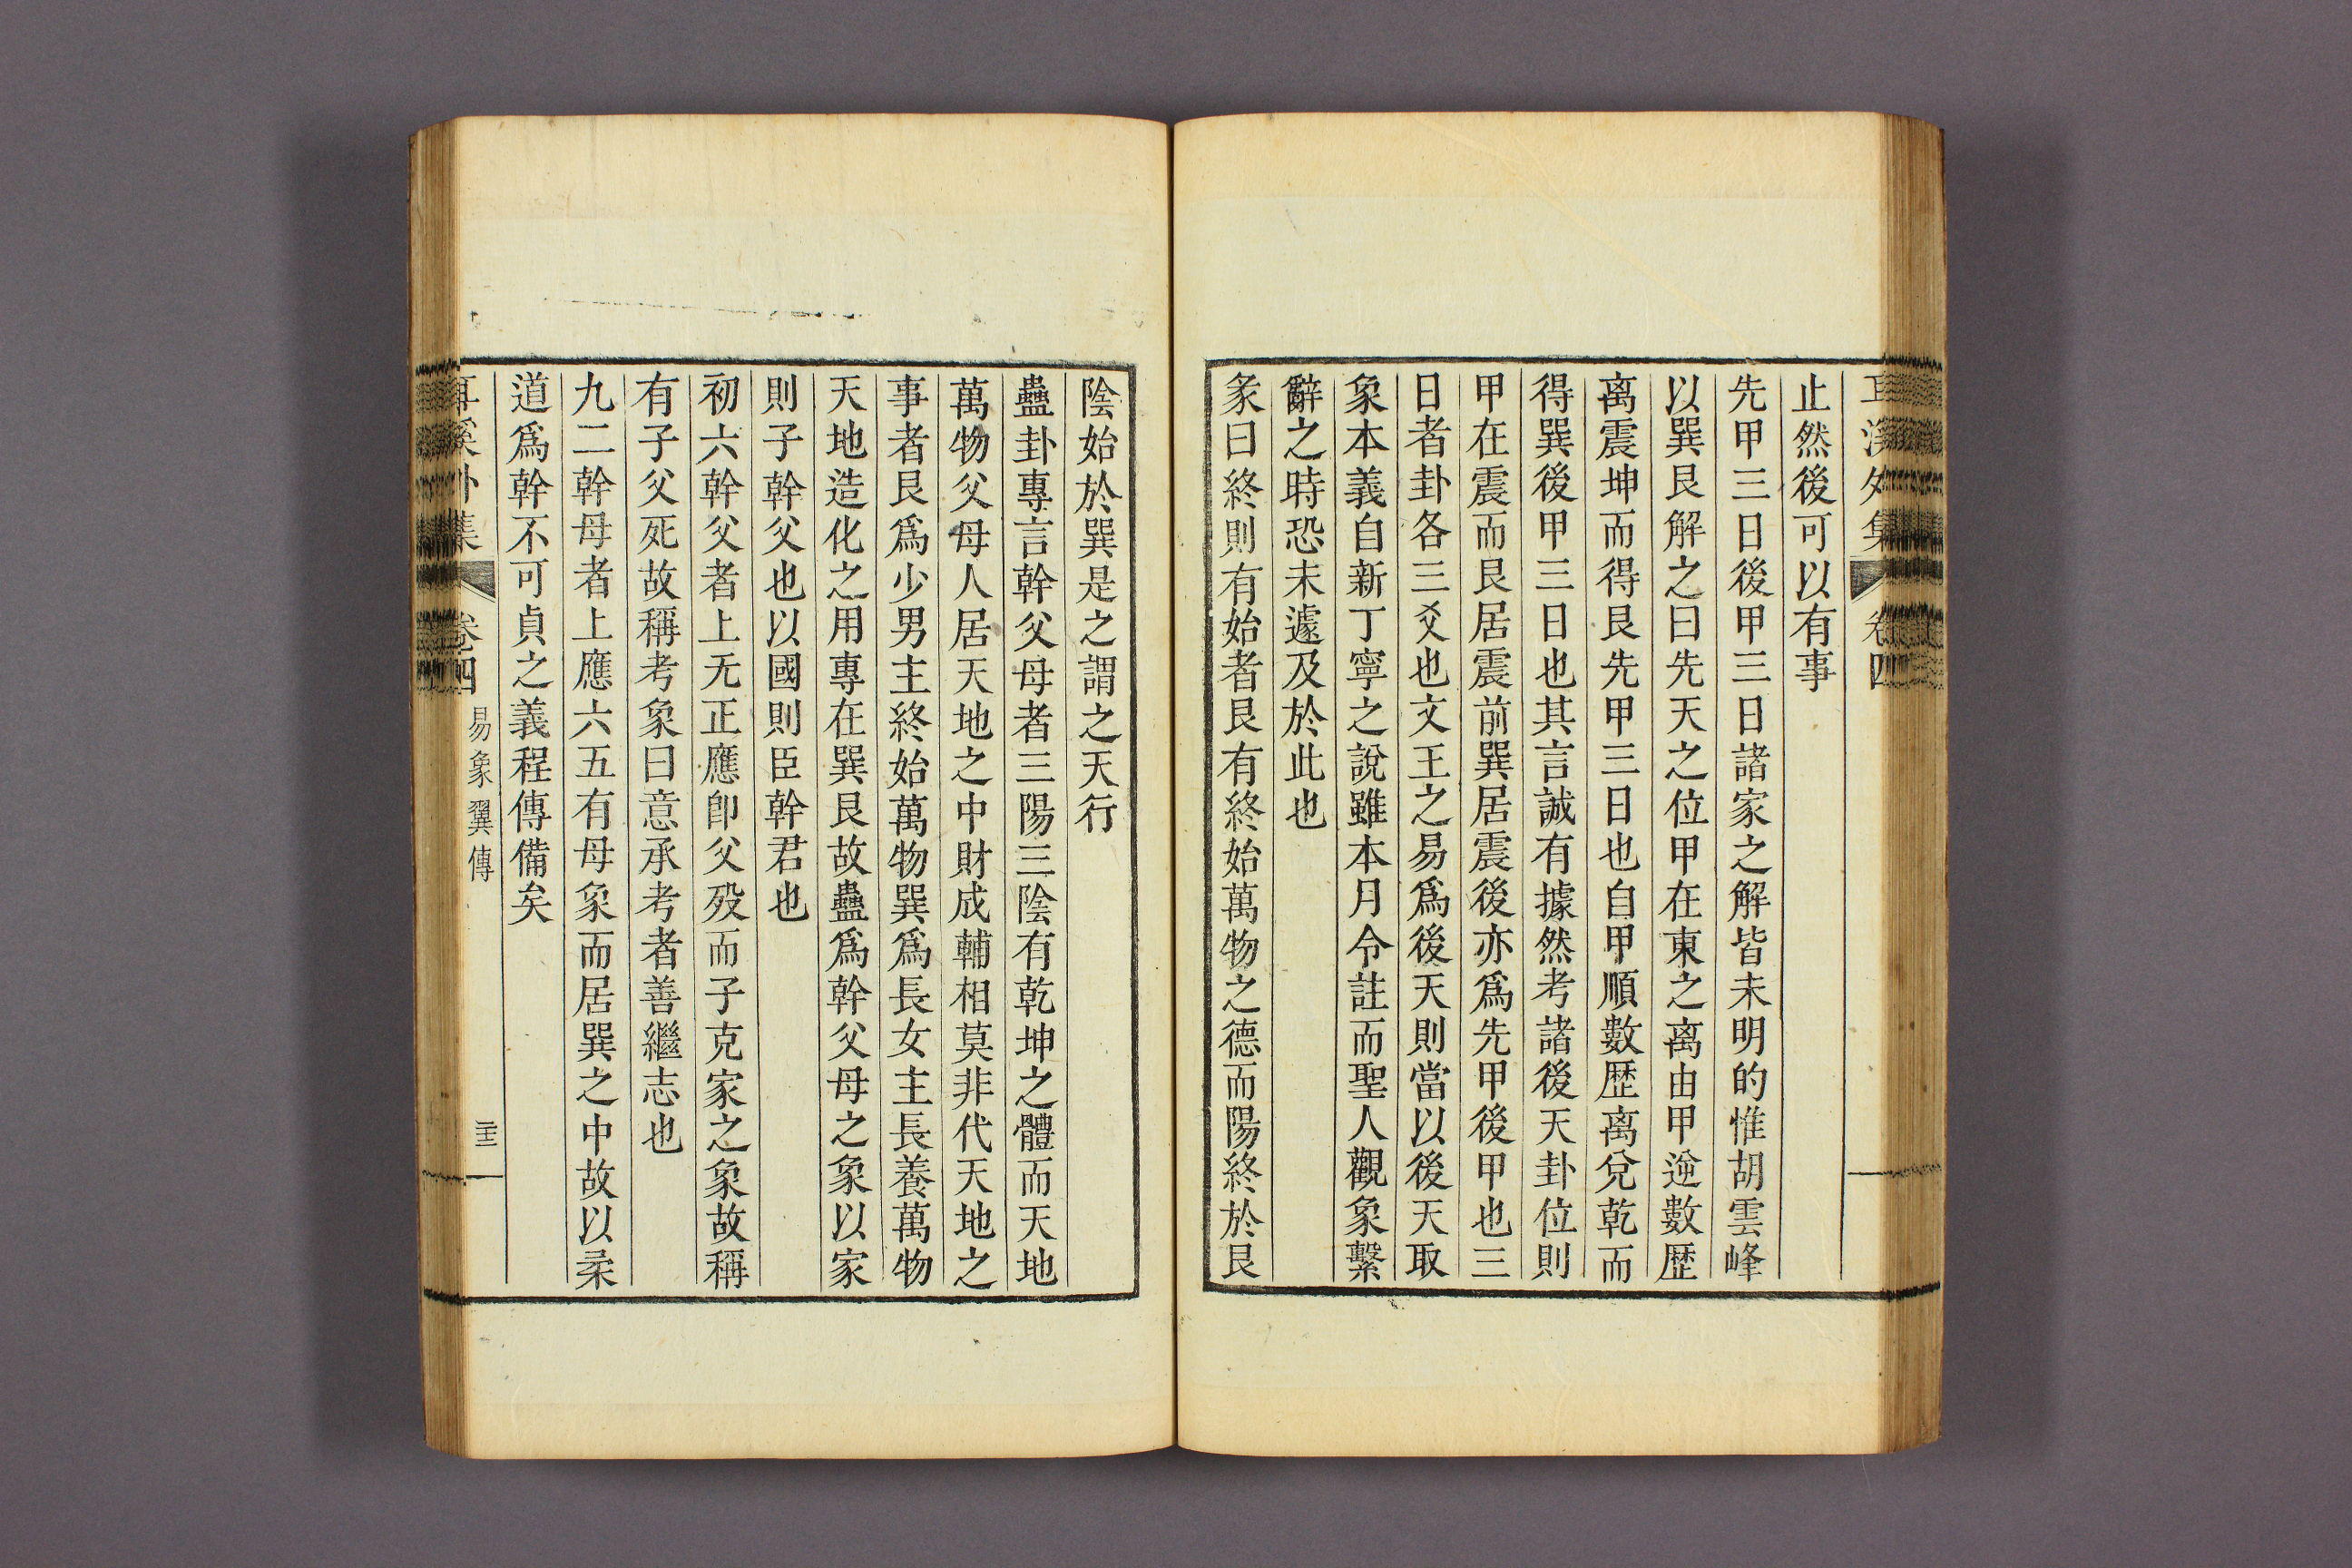 止然後可以有事
先甲三日後甲三日諸家之解皆未明的惟胡雲峰
以巽艮解之曰先天之位甲在東之离由甲逆數歴
离震坤而得艮先甲三日也自甲順數歴离兌乾而
得巽後甲三日也其言誠有據然考諸後天卦位則
甲在震而艮居震前巽居震後亦爲先甲後甲也三
日者卦各三爻也文王之易爲後天則當以後天取
象本義自新丁寧之說雖本月令註而聖人觀象繫
辭之時恐未遽及於此也
彖曰終則有始者艮有終始萬物之德而陽終於艮
陰始於巽是之謂之天行
蠱卦專言幹父母者三陽三陰有乾坤之體而天地
萬物父母人居天地之中財成輔相莫非代天地之
事者艮爲少男主終始萬物巽爲長女主長養萬物
天地造化之用專在巽艮故蠱爲幹父母之象以家
則子幹父也以國則臣幹君也
初六幹父者上无正應卽父歿而子克家之象故稱
有子父死故稱考象曰意承考者善繼志也
九二幹母者上應六五有母象而居巽之中故以柔
道爲幹不可貞之義程傳備矣
集 卷四 易象翼傳